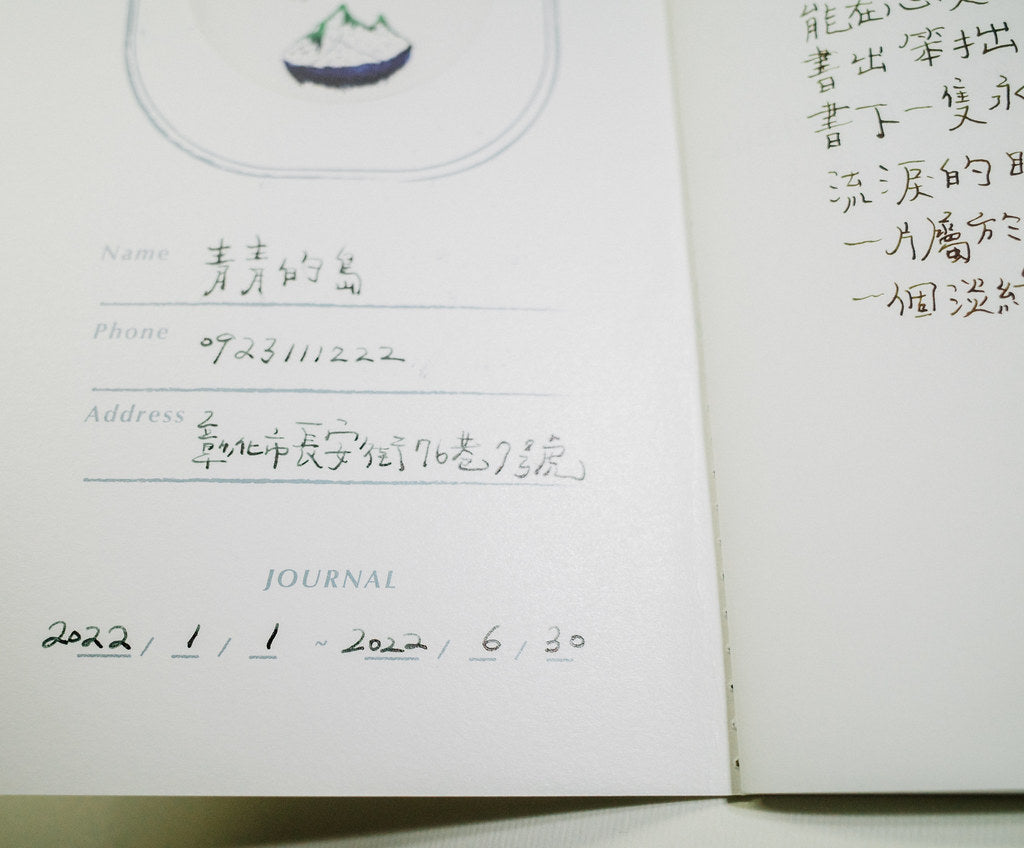 Name 青青的島
Phone 0923111222
Address 彰化市長安街76巷7號
JOURNAL
2022 / 1 / 1 ~ 2022 / 6 / 30
能在
書出笨拙
書下一隻永
流淚的
一片屬於
一個淡